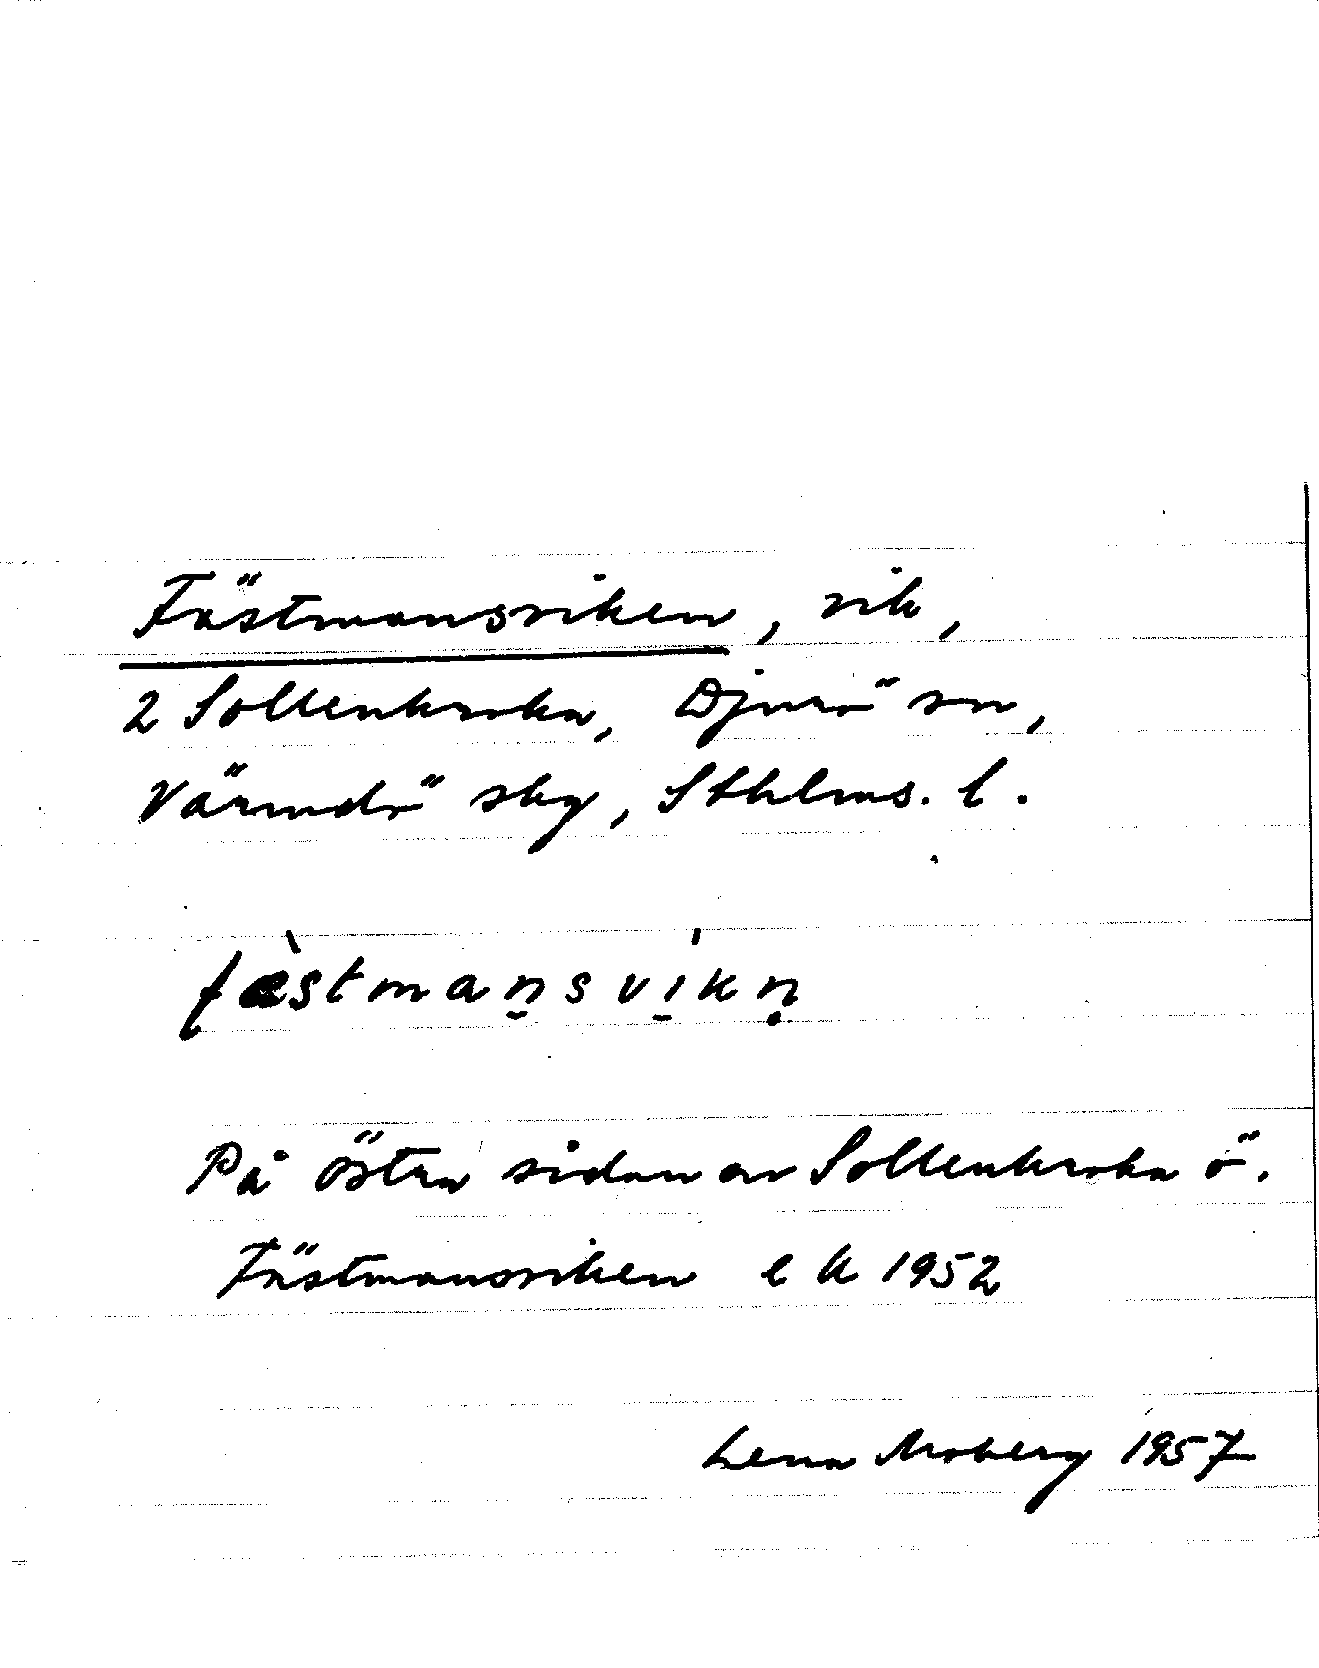 Fästmansviken, vik,
2 Sollenkroka, Djurö sn,
Värmdö skg, Sthlms. l.
fæ̀stman̠sví̠kn̥
På östra sidan av Sollenkroka ö.
Fästmansviken e k 1952
Lena Moberg 1957